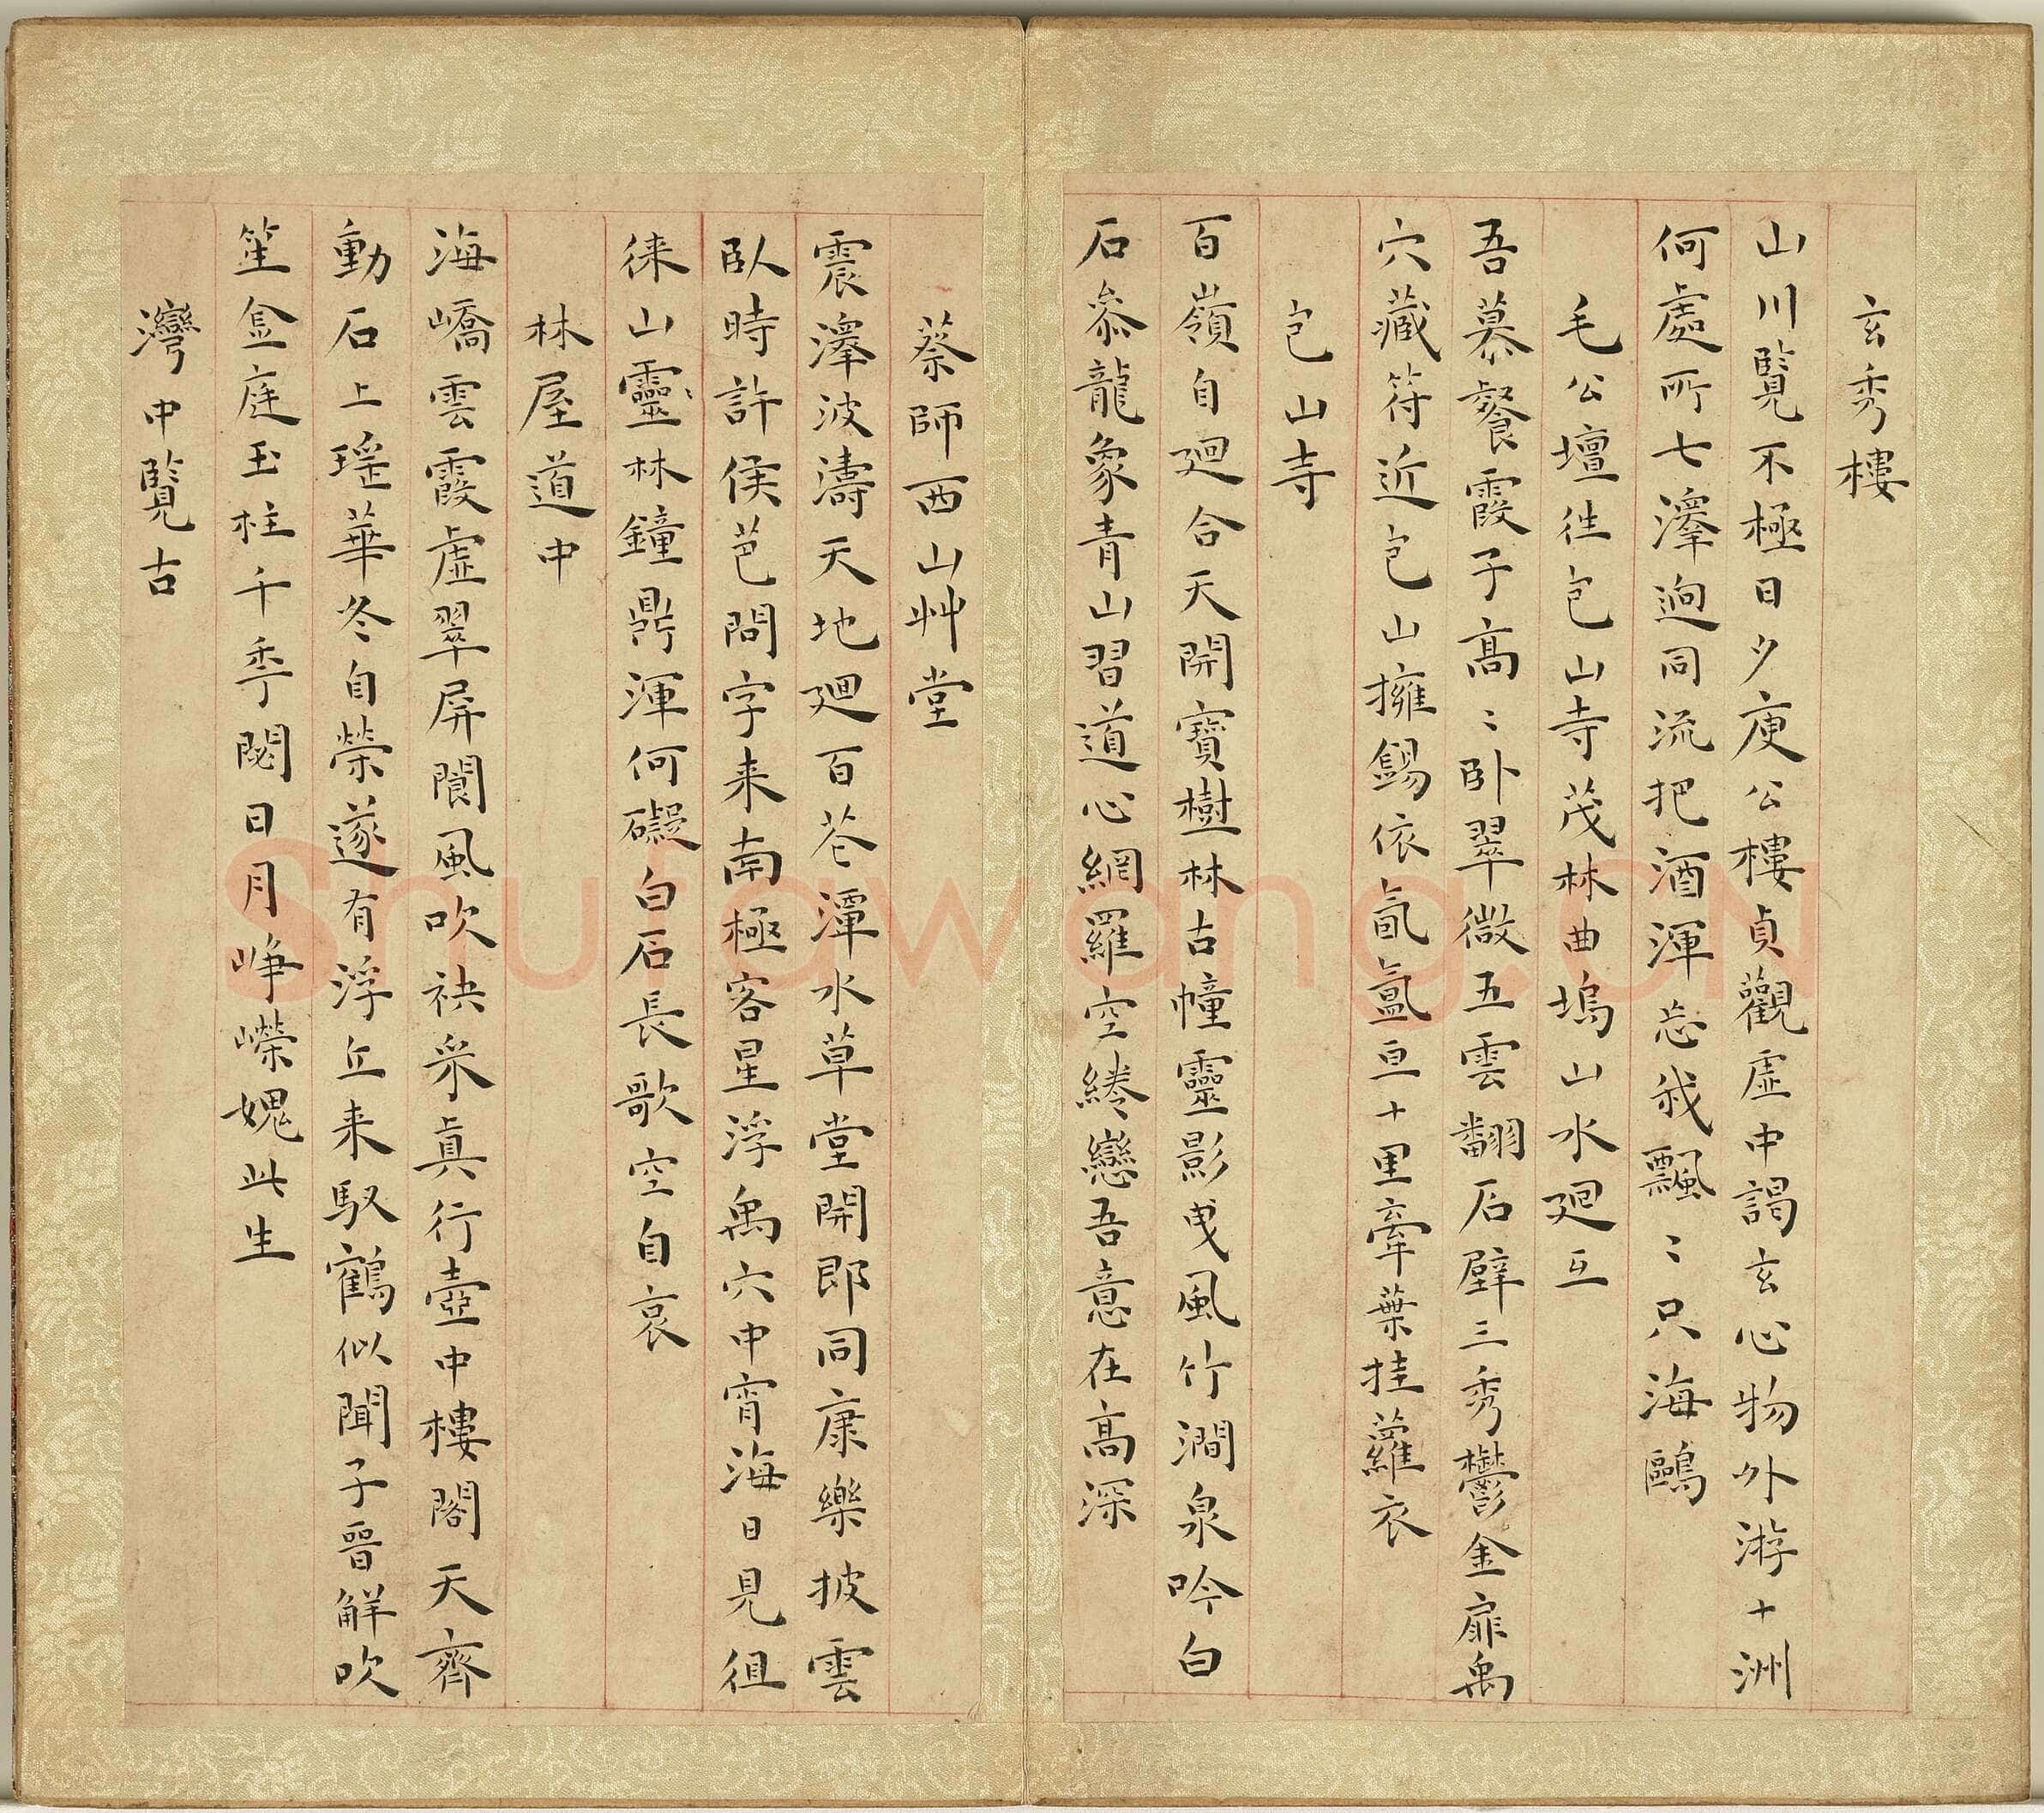 玄秀樓
山川覽不極日夕庾公樓貞觀虛中謁玄心物外游十洲
何處所七澤迥同流把酒渾忘我飄〻只海鷗
毛公壇往包山寺茂林曲塢山水廻互
吾慕餐霞子高〻卧翠微五雲翻石壁三秀鬱金扉禹
穴藏符近包山擁錫依氤氳亘十里牽葉挂蘿衣
包山寺
百嶺自廻合天開寶樹林古幢靈影曳風竹澗泉吟白
石叅龍象青山習道心網羅空綣戀吾意在高深
蔡師西山艸堂
震澤波濤天地廻百花潭水草堂開即同康樂披雲
臥時許侯芭問字来南極客星浮禹穴中宵海日見徂
徠山靈〻林鐘鼎渾何礙白石長歌空自哀
林屋道中
海嶠雲霞虛翠屏閬風吹袂采真行壺中樓閣天齊
動石上瑤華冬自榮遂有浮丘来馭鶴似聞子晉解吹
笙金庭玉柱千秊閟日月崢嶸媿此生
灣中覽古
Shufawang.CN